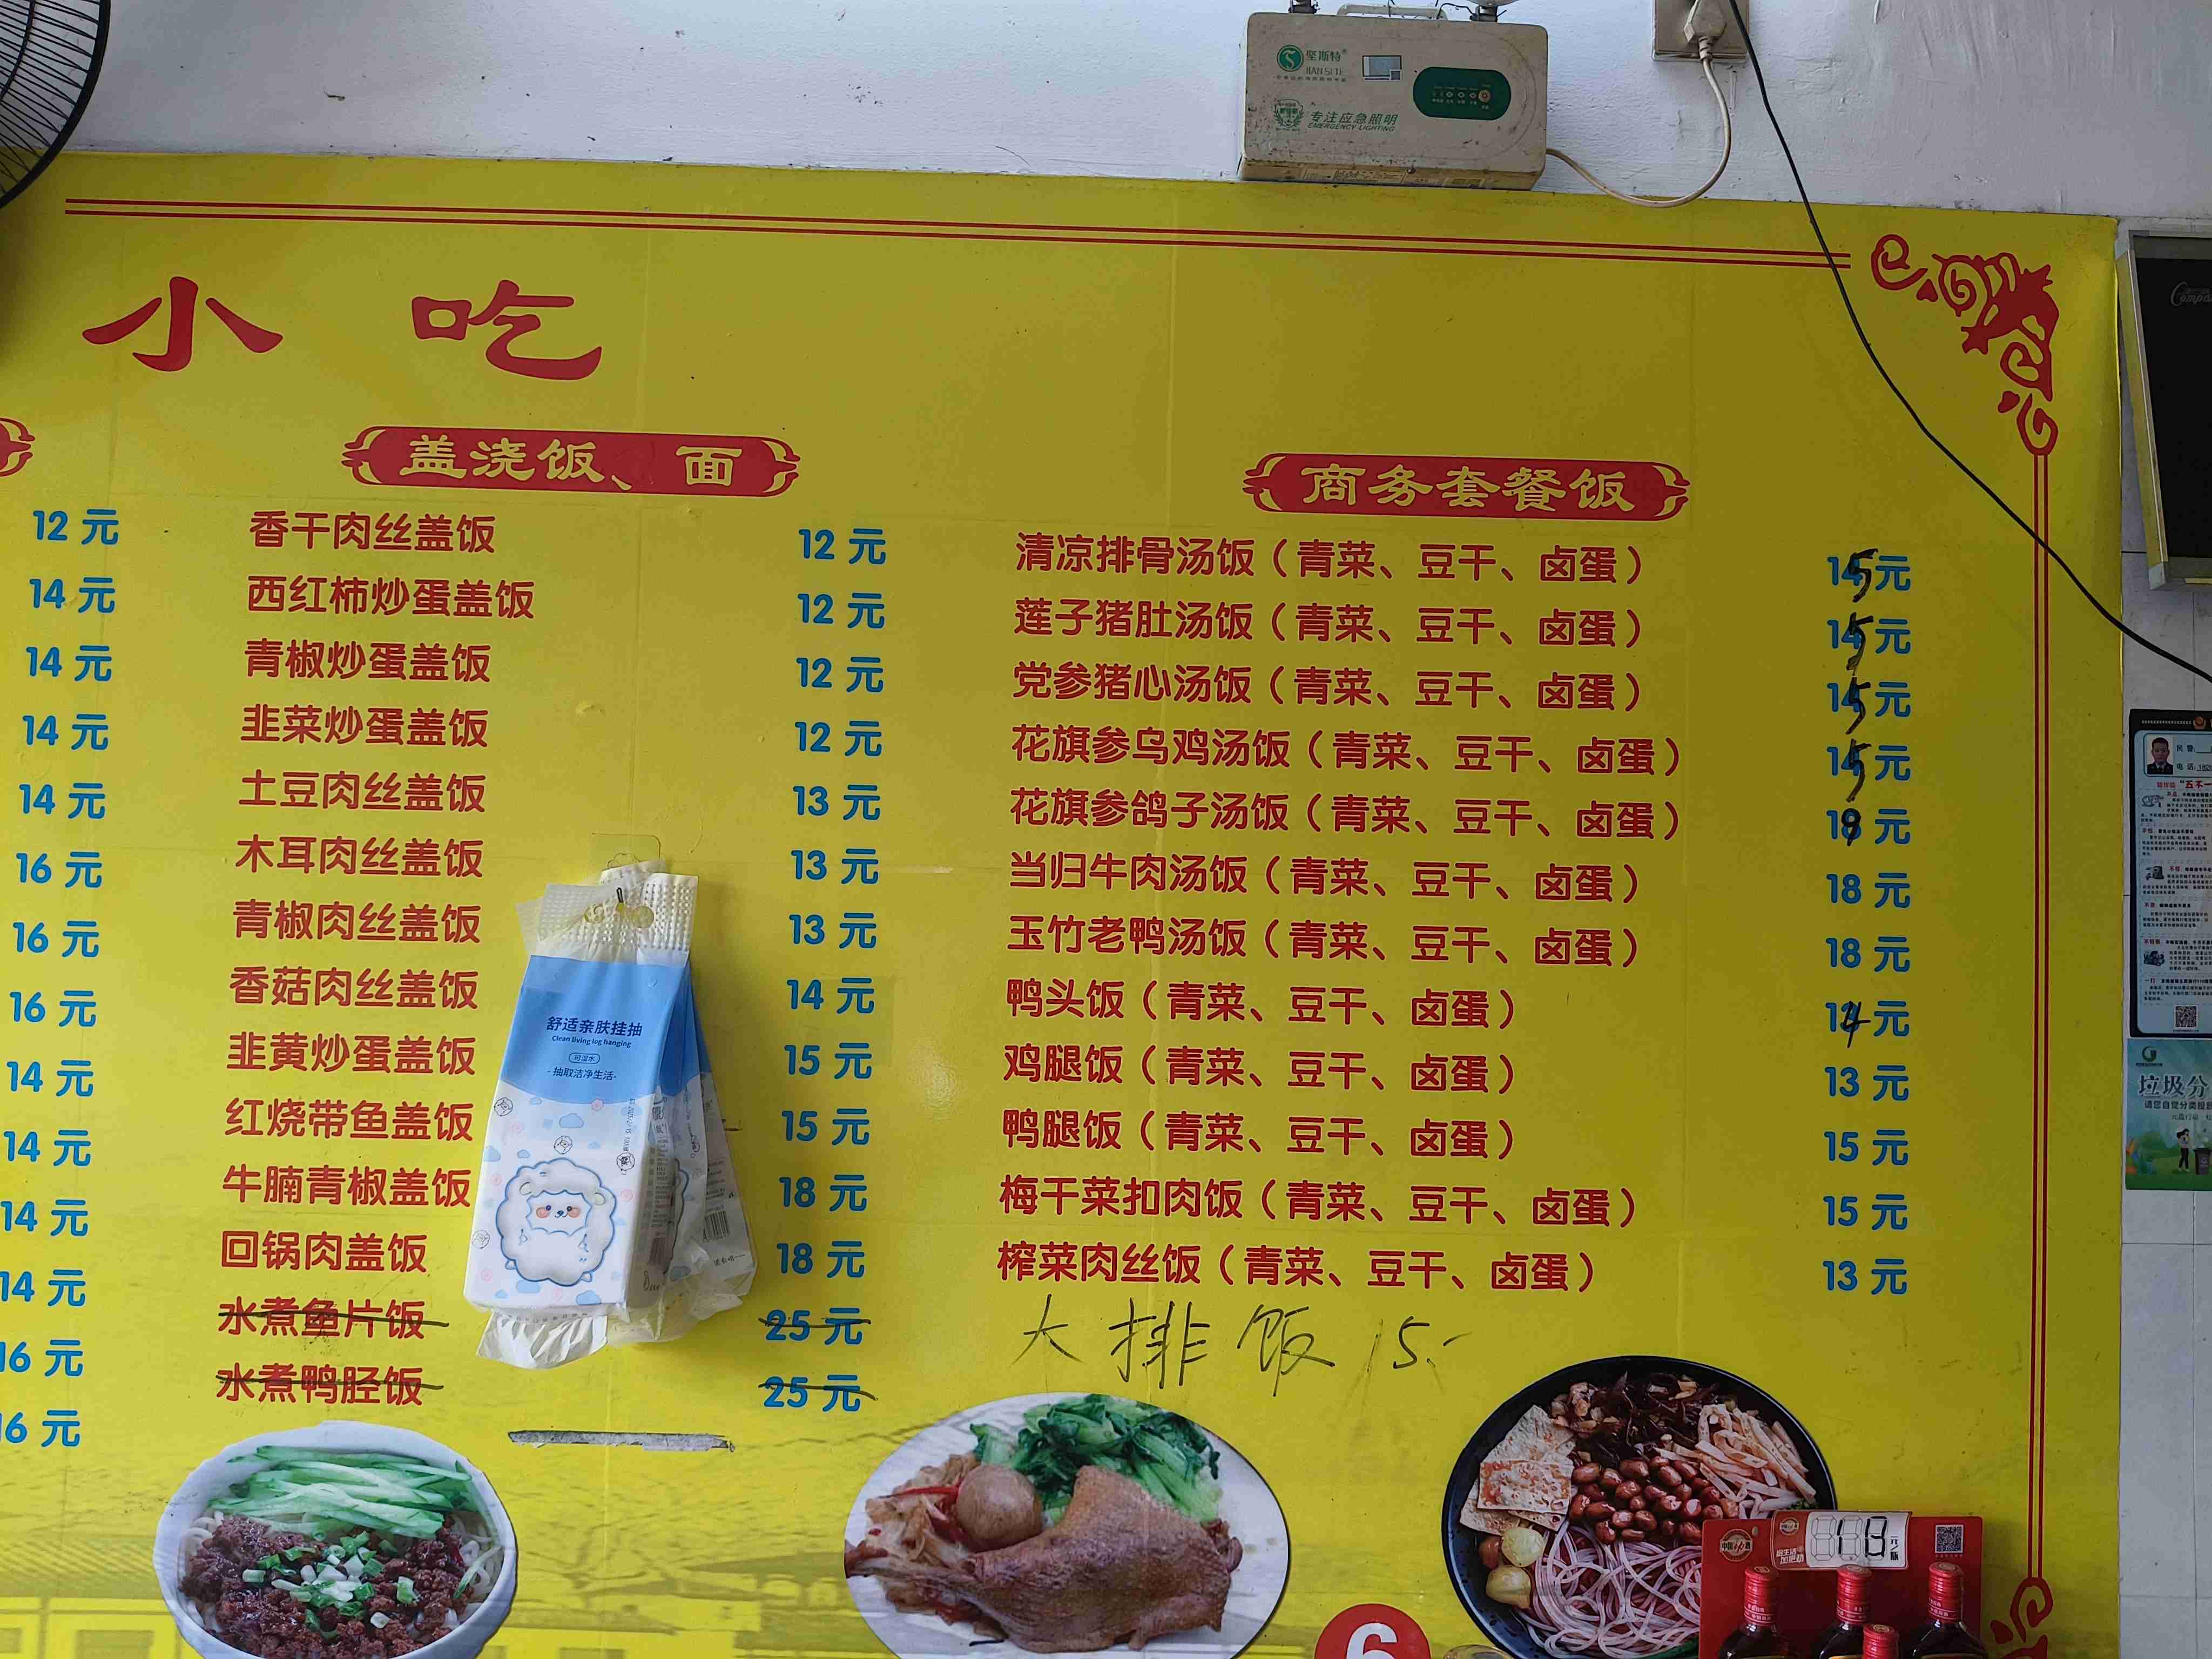 坚斯特®
JIANSITE
专注应急照明
EMERGENCY LIGHTING
小 吃
盖浇饭、面
香干肉丝盖饭 12 元
西红柿炒蛋盖饭 12 元
青椒炒蛋盖饭 12 元
韭菜炒蛋盖饭 12 元
土豆肉丝盖饭 13 元
木耳肉丝盖饭 13 元
青椒肉丝盖饭 13 元
香菇肉丝盖饭 14 元
韭黄炒蛋盖饭 15 元
红烧带鱼盖饭 15 元
牛腩青椒盖饭 18 元
回锅肉盖饭 18 元
水煮鱼片饭 25 元
水煮鸭胫饭 25 元
12 元
14 元
14 元
14 元
14 元
16 元
16 元
16 元
14 元
14 元
14 元
14 元
16 元
16 元
商务套餐饭
清凉排骨汤饭（青菜、豆干、卤蛋） 15元
莲子猪肚汤饭（青菜、豆干、卤蛋） 15元
党参猪心汤饭（青菜、豆干、卤蛋） 15元
花旗参乌鸡汤饭（青菜、豆干、卤蛋） 15元
花旗参鸽子汤饭（青菜、豆干、卤蛋） 19元
当归牛肉汤饭（青菜、豆干、卤蛋） 18 元
玉竹老鸭汤饭（青菜、豆干、卤蛋） 18 元
鸭头饭（青菜、豆干、卤蛋） 14元
鸡腿饭（青菜、豆干、卤蛋） 13 元
鸭腿饭（青菜、豆干、卤蛋） 15 元
梅干菜扣肉饭（青菜、豆干、卤蛋） 15 元
榨菜肉丝饭（青菜、豆干、卤蛋） 13 元
大排饭 15.-
舒适亲肤挂抽
Clean living log hanging
可湿水
-抽取洁净生活-
垃圾分
6